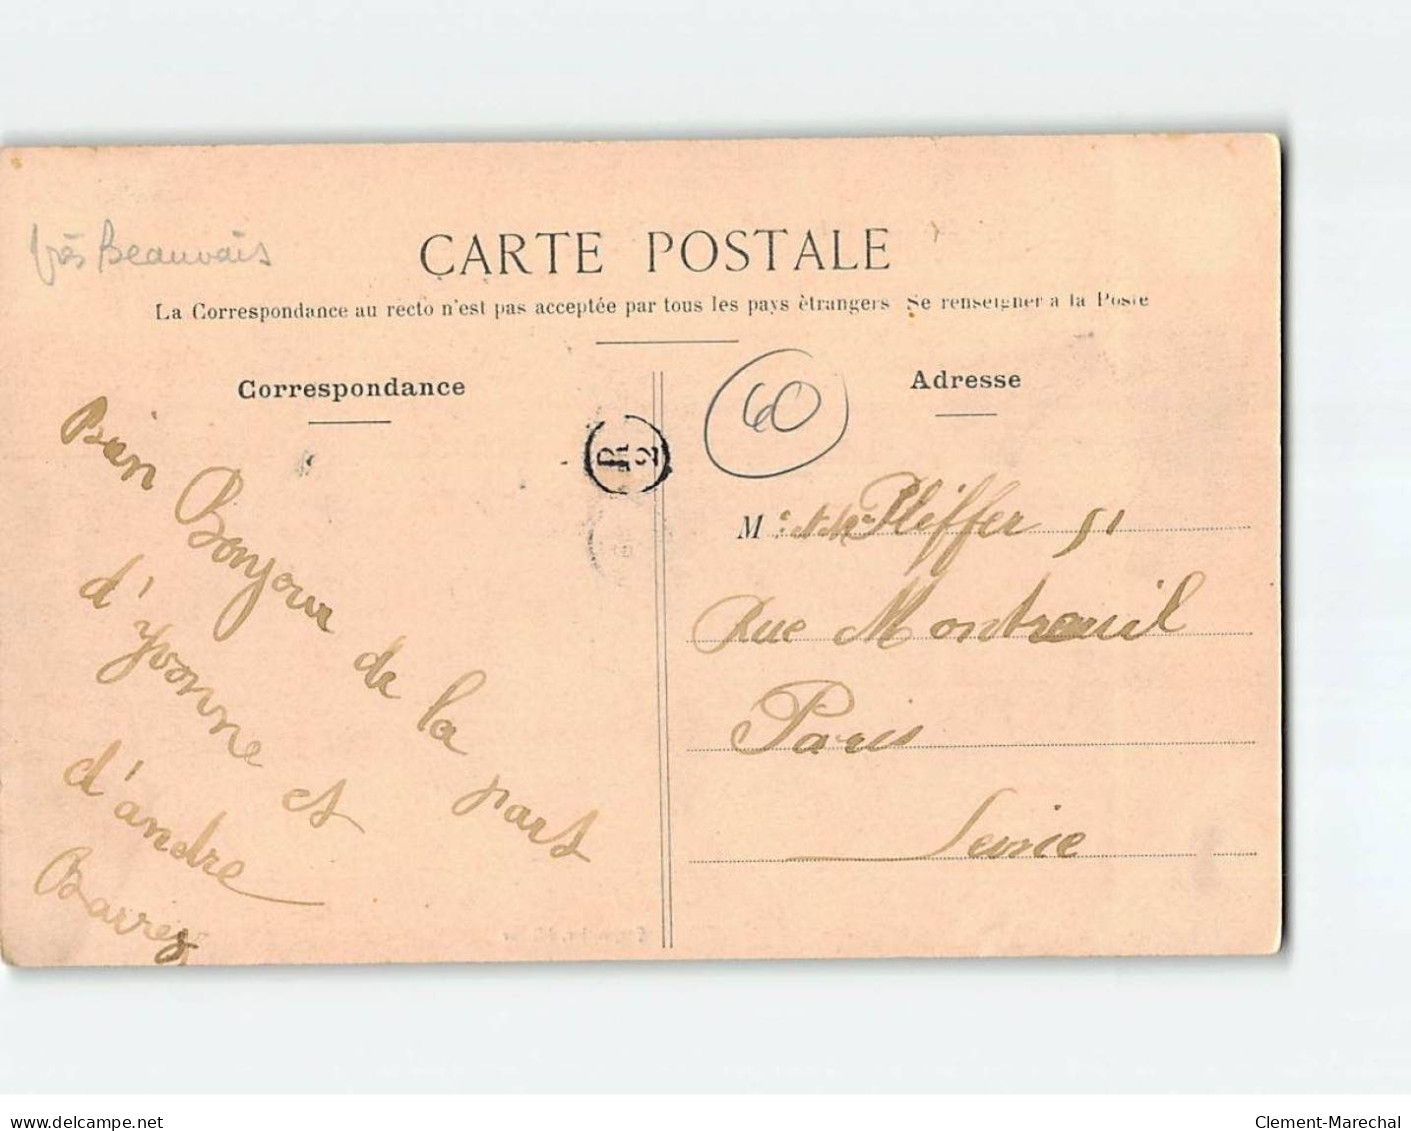 près Beauvais
CARTE POSTALE
La Correspondance au recto n'est pas acceptée par tous les pays étrangers Se renseigner à la Poste
Correspondance
Bien Bonjour de la part
d'Yvonne et
d'andre
Barrey
R
2
60
Adresse
M Pfeiffer 51
Rue Montreuil
Paris
Seine
www.delcampe.net
Clement-Marechal